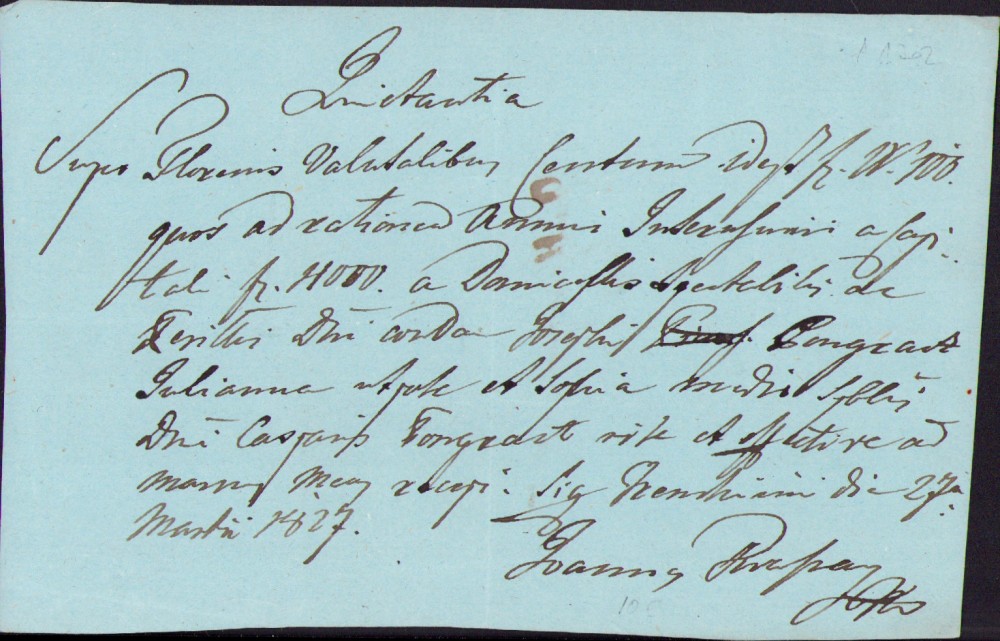 Quietantia
Super Florenis Valutalibus Centum idest fr. W. 100.
quos ad rationem Annui Interusurii a Capi-
tali fr. 4000. a Domicellis Spectabilis ac
Dni Josephi Pongratz
Julianna utpote et Sofia
Dni Casparis Pongratz rite et effective ad
manus meas recepi. Sig Trenchinii die 27a
Martii 1827.
Joannes